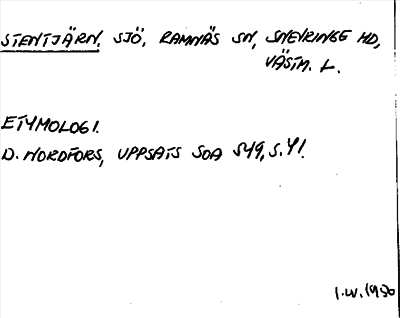 STENTJÄRN, SJÖ, RAMNÄS SN, SNEVRINGE HD,
VÄSTM. L.
ETYMOLOGI.
D. NORDFORS, UPPSATS SOA 549, S. 41.
I.W. 1950